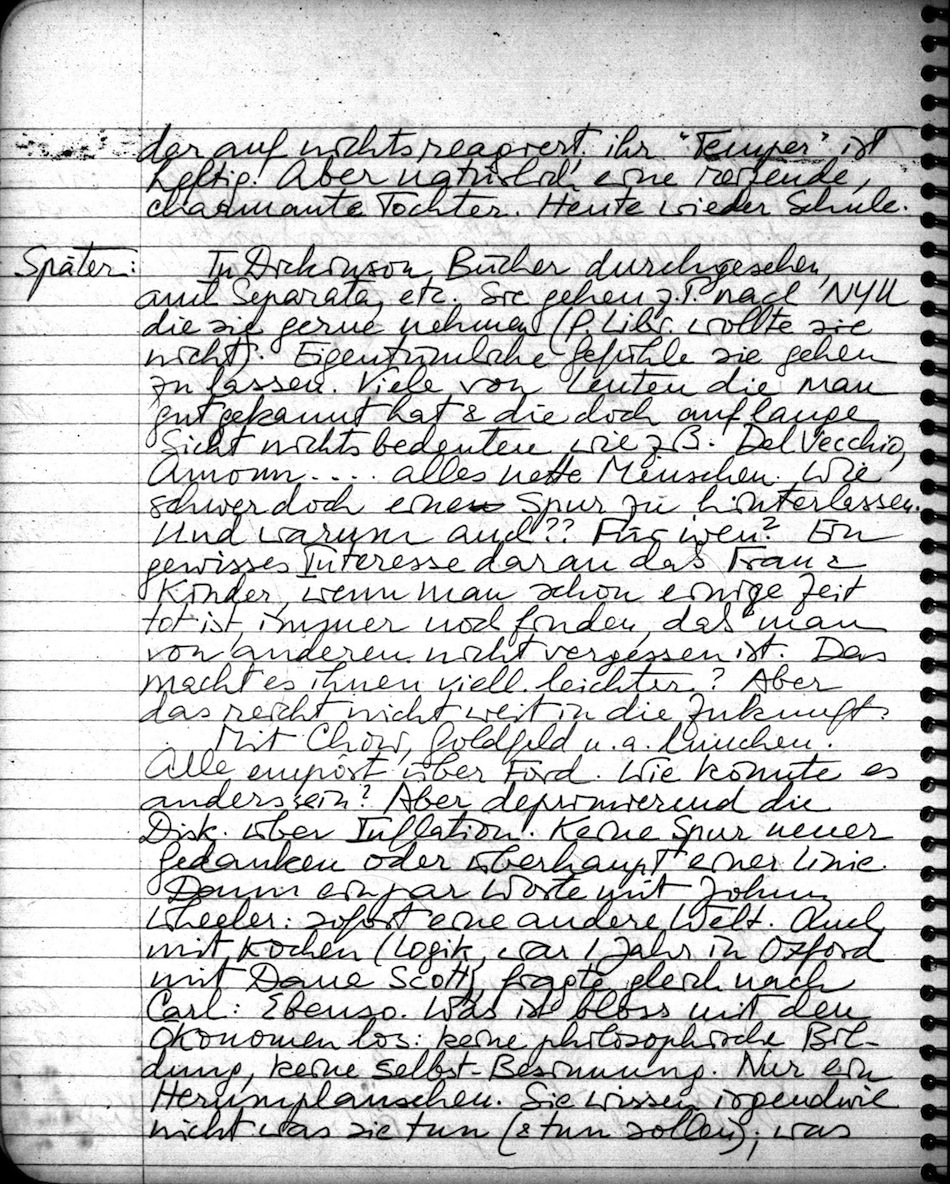 darauf nichts reagiert, ihr "Temper" ist
heftig. Aber natürlich eine reizende,
charmante Tochter. Heute wieder Schule.
Später: In Dickinson, Bücher durchgesehen,
auch Separata, etc. Sie gehen z.T. nach NYU
die sie gerne nehmen (P. Libr. wollte sie
nicht). Eigentümliche Gefühle sie gehen
zu lassen. Viele von Leuten die man
gut gekannt hat & die doch auf lange
Sicht nichts bedeuten wie z.B. Del Vecchio,
Amonn.... alles nette Menschen. Wie
schwer doch eine Spur zu hinterlassen.
Und warum auch?? Für wen? Ein
gewisses Interesse daran das Frau &
Kinder, wenn man schon einige Zeit
tot ist, immer noch finden, das man
von anderen nicht vergessen ist. Das
macht es ihnen viell. leichter? Aber
das reicht nicht weit in die Zukunft.
Mit Chow, Goldfeld u.a. lunchen.
Alle empört über Ford. Wie könnte es
anders sein? Aber deprimierend die
Disk. über Inflation. Keine Spur neuer
Gedanken oder überhaupt einer Linie.
Dann ein par Worte mit John
Wheeler: sofort eine andere Welt. Auch
mit Kochen (Logik, war 1 Jahr in Oxford
mit Dane Scott), fragte gleich nach
Carl: Ebenso. Was ist bloss mit den
Ökonomen los: keine philosophische Bil-
dung, keine Selbst-Besinnung. Nur ein
Herumplanschen. Sie wissen irgendwie
nicht was sie tun (& tun sollen); was